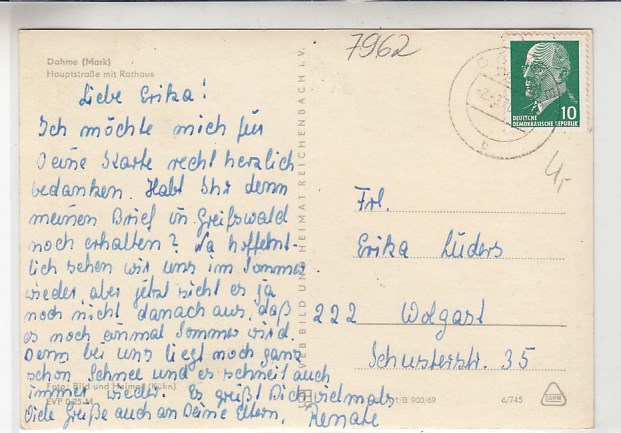 Dahme (Mark)
Hauptstraße mit Rathaus
Liebe Erika!
Ich möchte mich für
Deine Karte recht herzlich
bedanken. Habt Ihr denn
meinen Brief in Greifswald
noch erhalten? Na hoffentl-
lich sehen wir uns im Sommer
wieder, aber jetzt sieht es ja
noch nicht danach aus, daß
es noch einmal Sommer wird.
Denn bei uns liegt noch ganz
schön Schnee und es schneit auch
immer wieder. Es grüßt Dich vielmals
Viele Grüße auch an Deine Eltern, Renate
Foto: Bild und Heimat (Kühn)
EVP 0,25 M
VEB BILD UND HEIMAT REICHENBACH I. V.
7962
10
DEUTSCHE
DEMOKRATISCHE REPUBLIK
4,-
Frl.
Erika Lüders
222 Wolgast
Schusterstr. 35
1/B 900/69
6/745